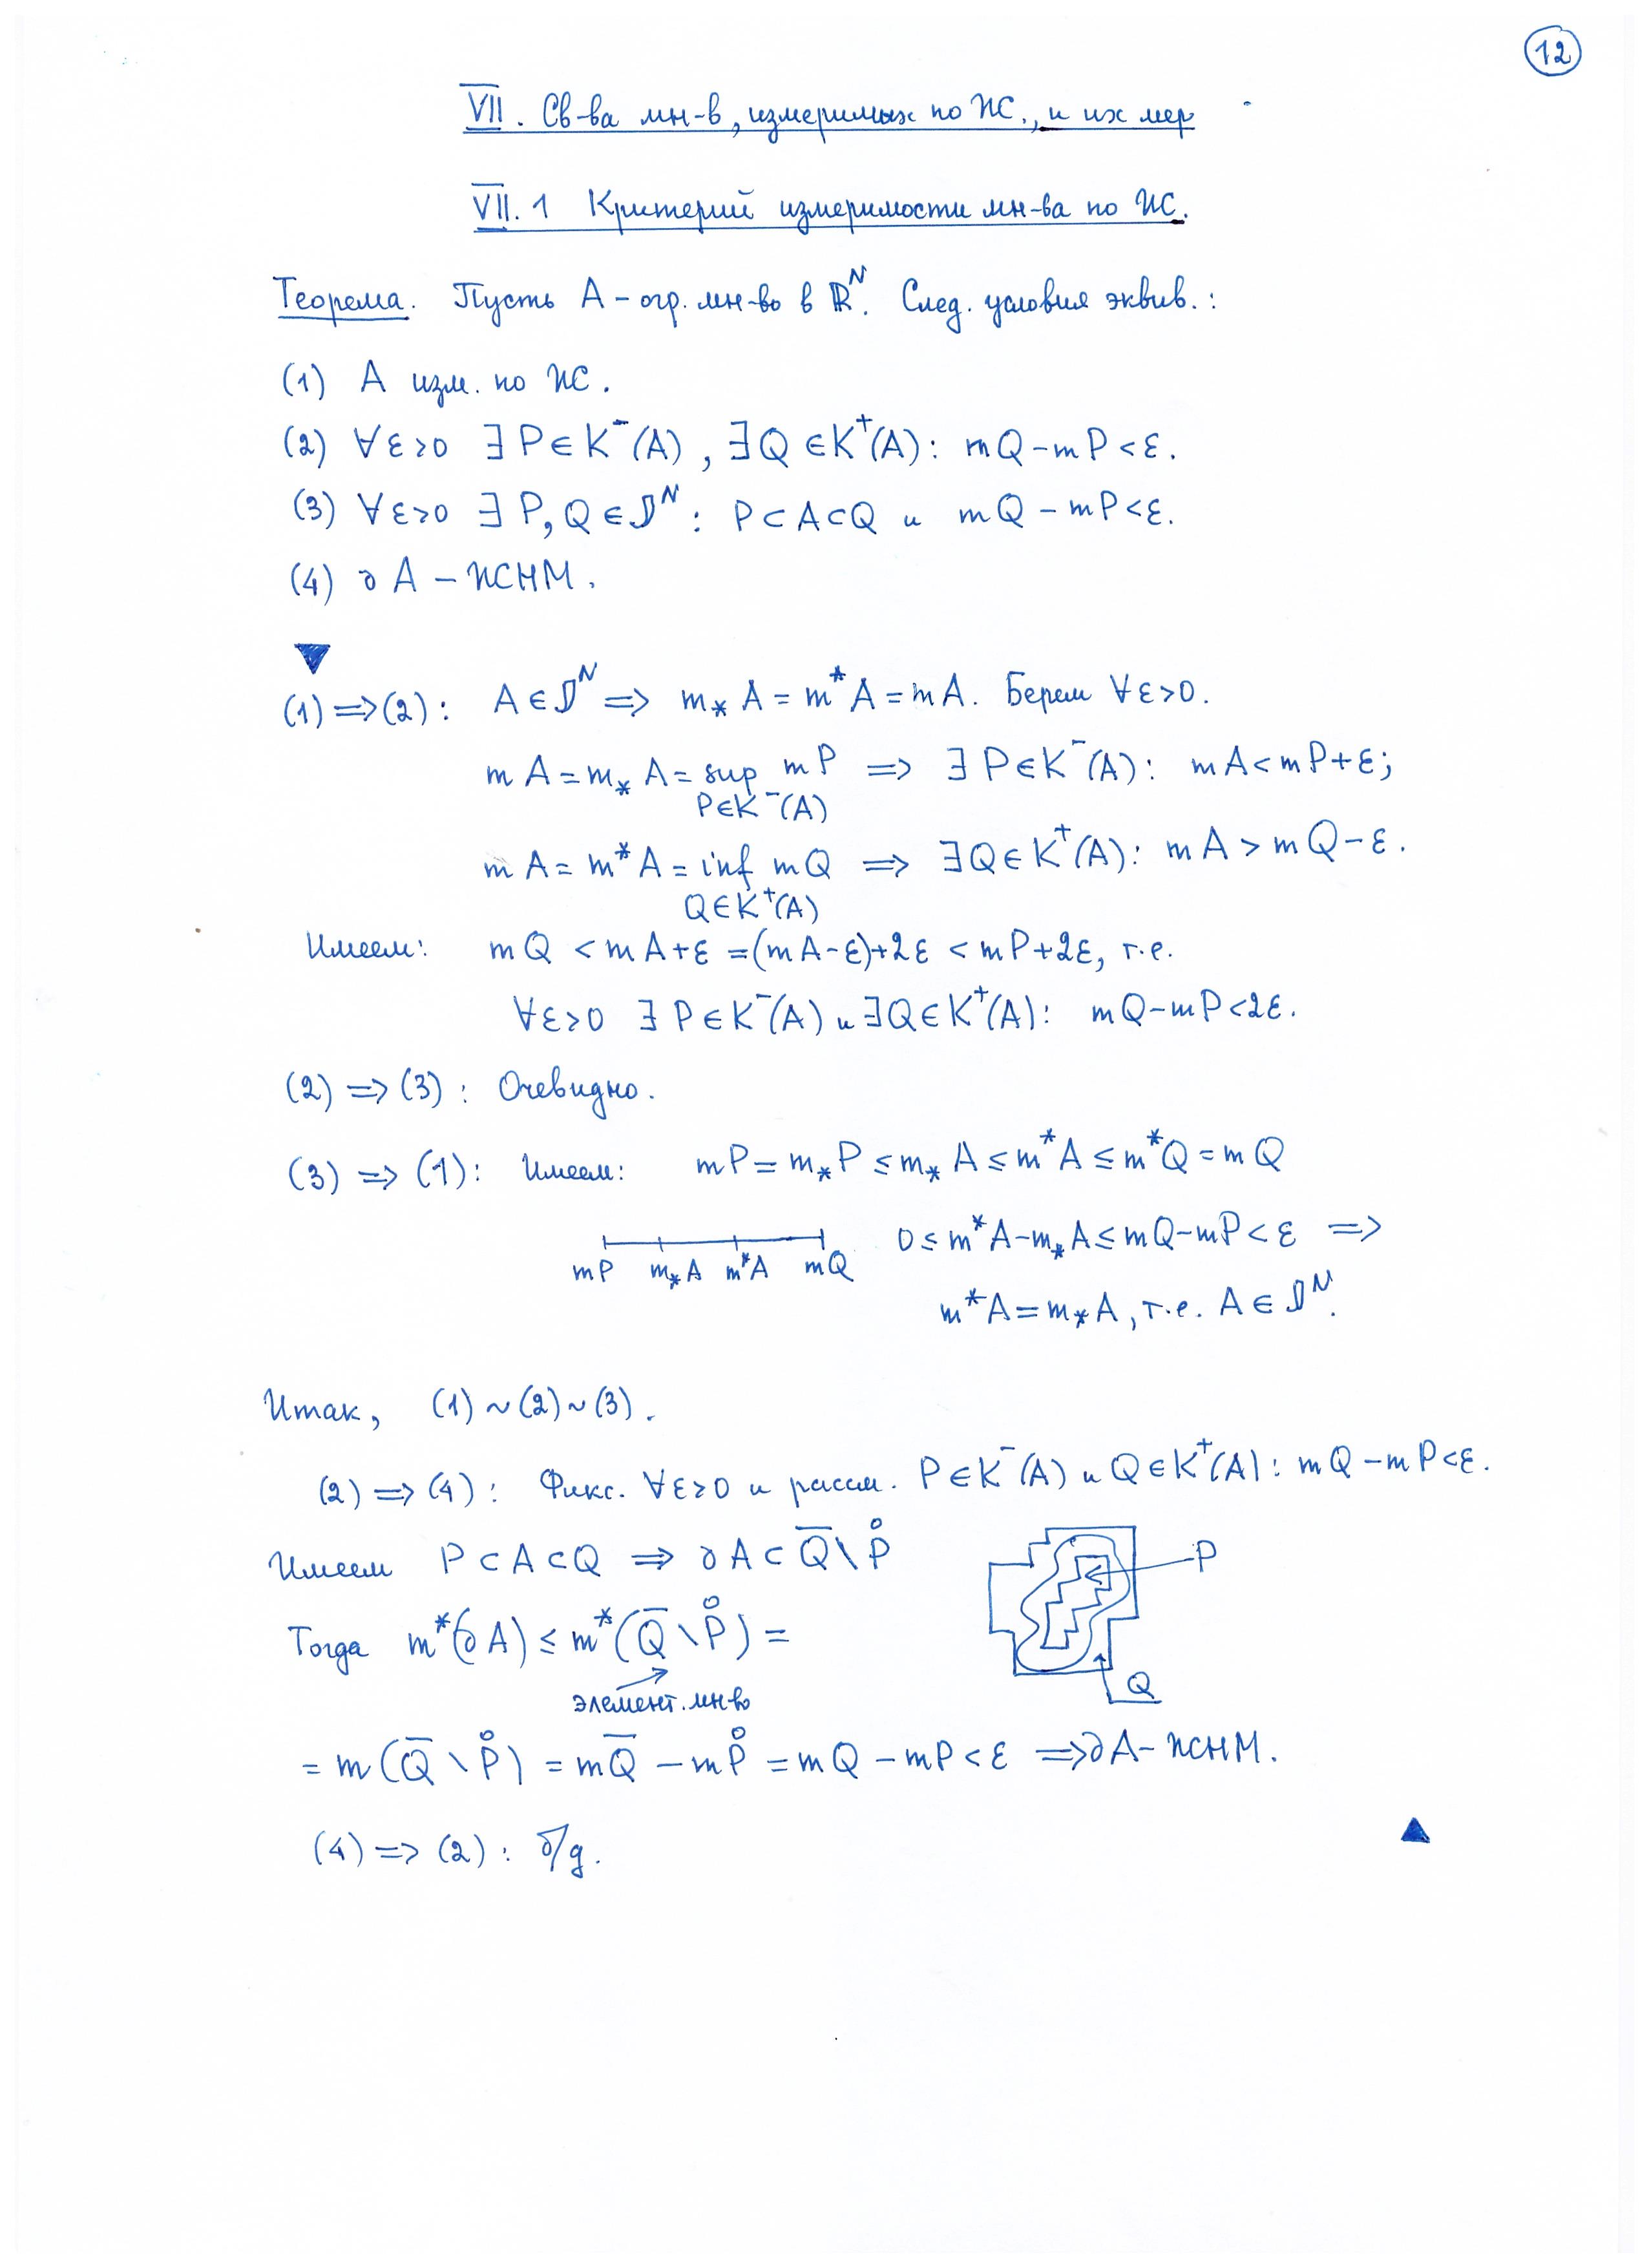 12
VII. Св-ва мн-в, измеримых по ЖС., и их мер
VII.1 Критерий измеримости мн-ва по ЖС.
Теорема. Пусть A – огр. мн-во в ℝᴺ. След. условия эквив.:
(1) A изм. по ЖС.
(2) ∀ε>0 ∃ P∈K⁻(A), ∃Q∈K⁺(A): mQ−mP<ε.
(3) ∀ε>0 ∃ P, Q∈𝒥ᴺ: P⊂A⊂Q и mQ−mP<ε.
(4) ∂A – ЖСНМ.
▼
(1)⟹(2): A∈𝒥ᴺ ⟹ m_*A = m^*A = mA. Берем ∀ε>0.
mA = m_*A = sup mP ⟹ ∃ P∈K⁻(A): mA<mP+ε;
P∈K⁻(A)
mA = m^*A = inf mQ ⟹ ∃Q∈K⁺(A): mA > mQ−ε.
Q∈K⁺(A)
Имеем: mQ < mA+ε = (mA−ε)+2ε < mP+2ε, т.е.
∀ε>0 ∃ P∈K⁻(A) и ∃Q∈K⁺(A): mQ−mP<2ε.
(2) ⟹ (3): Очевидно.
(3) ⟹ (1): Имеем: mP = m_*P ≤ m_*A ≤ m^*A ≤ m^*Q = mQ
mP m_*A m^*A mQ 0 ≤ m^*A−m_*A ≤ mQ−mP < ε ⟹
m^*A = m_*A, т.е. A∈𝒥ᴺ.
Итак, (1)~(2)~(3).
(2) ⟹ (4): Фикс. ∀ε>0 и рассм. P∈K⁻(A) и Q∈K⁺(A): mQ−mP<ε.
Имеем P⊂A⊂Q ⟹ ∂A⊂Q̅\P̊
P
Тогда m^*(∂A) ≤ m^*(Q̅\P̊) =
Q
элемент. мн-во
= m(Q̅\P̊) = mQ̅ − mP̊ = mQ − mP < ε ⟹ ∂A – ЖСНМ.
(4) ⟹ (2): б/д.
▲